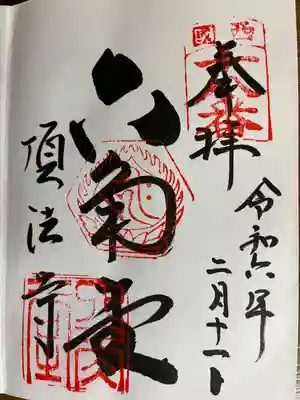 奉拝
令和六年
二月十一日
六角堂
頂法寺